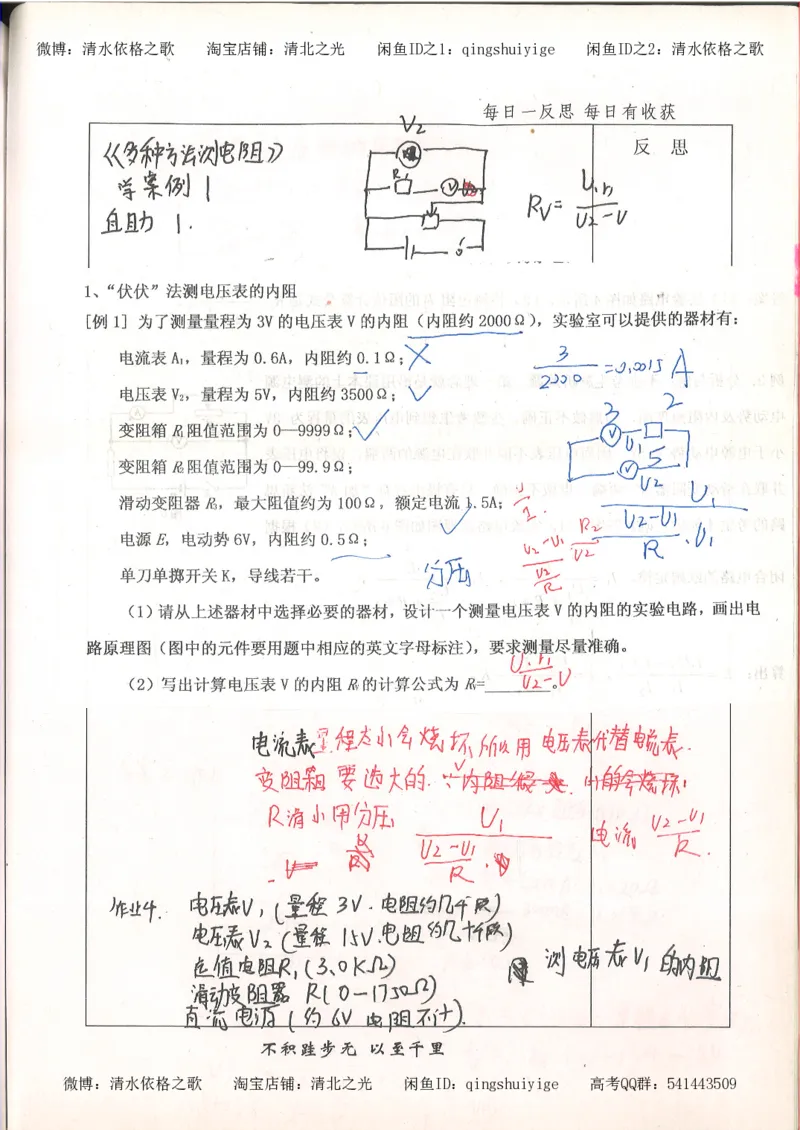 微博：清水依格之歌 淘宝店铺：清北之光 闲鱼ID之1：qingshuiyige 闲鱼ID之2：清水依格之歌
每日一反思 每日有收获
反 思
《多种方法测电阻》
学案例1
自助 1.
V2
R1
V
Rv= U·R1/(U2-U)
1、“伏伏”法测电压表的内阻
[例1] 为了测量量程为 3V 的电压表 V 的内阻（内阻约 2000Ω），实验室可以提供的器材有：
电流表 A₁，量程为 0.6A，内阻约 0.1Ω； X
3/2000 =0.0015A
电压表 V₂，量程为 5V，内阻约 3500Ω； √
变阻箱 R₁阻值范围为 0—9999Ω； √
3 2
V U1
V 5
U2
变阻箱 R₂阻值范围为 0—99.9Ω；
滑动变阻器 R₃，最大阻值约为 100Ω，额定电流 1.5A；
U1/((U2-U1)/R ·U1)
电源 E，电动势 6V，内阻约 0.5Ω；
单刀单掷开关 K，导线若干。
分压
（1）请从上述器材中选择必要的器材，设计一个测量电压表 V 的内阻的实验电路，画出电
路原理图（图中的元件要用题中相应的英文字母标注），要求测量尽量准确。
（2）写出计算电压表 V 的内阻 Rv的计算公式为 Rv= U·R1/(U2-U) 。
电流表量程太小会烧坏 所以用 电压表代替电流表.
变阻箱 要选大的.
R滑小用分压
U1/((U2-U1)/R)
电流 (U2-U1)/R.
作业4. 电压表V1（量程 3V. 电阻约几千欧）
电压表V2（量程 15V.电阻约几十千欧）
定值电阻R1（3.0KΩ）
测电压表V1的内阻
滑动变阻器 R（0-1750Ω）
直流电源（约 6V 电阻不计）.
不积跬步无 以至千里
微博：清水依格之歌 淘宝店铺：清北之光 闲鱼ID：qingshuiyige 高考QQ群：541443509